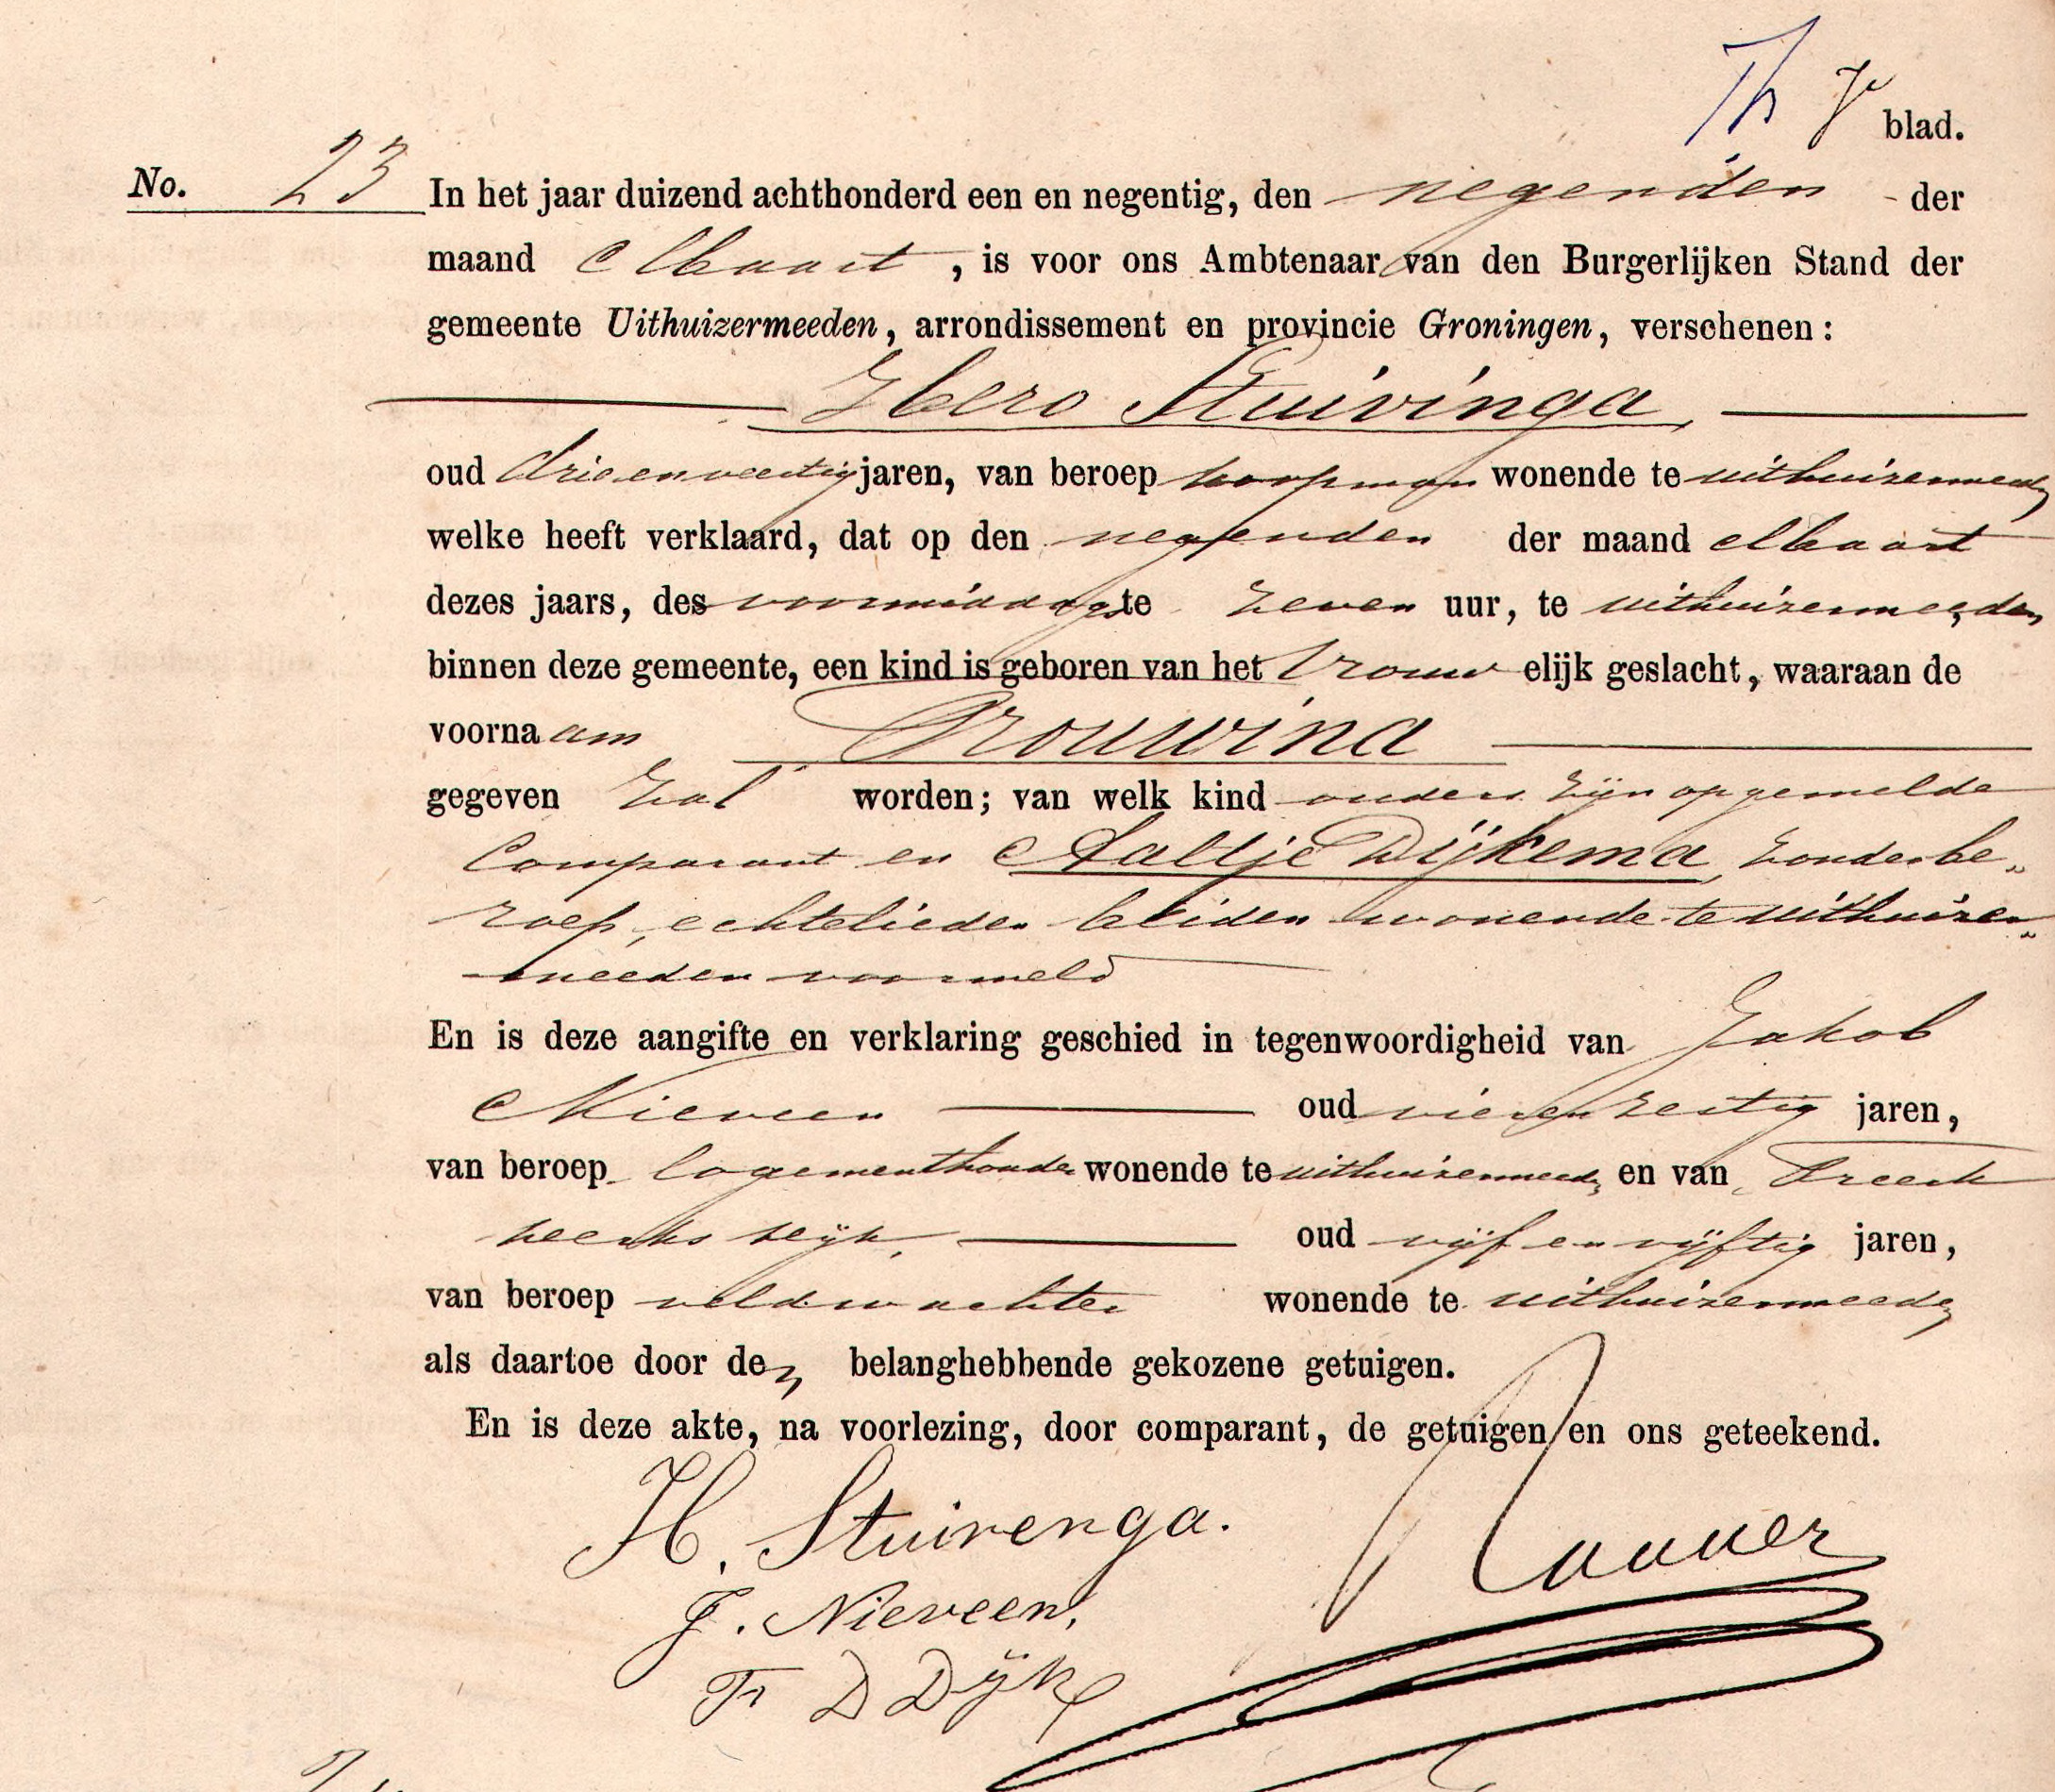 Th 7e blad.
No. 23 In het jaar duizend achthonderd een en negentig, den negenden der
maand Maart, is voor ons Ambtenaar van den Burgerlijken Stand der
gemeente Uithuizermeeden, arrondissement en provincie Groningen, verschenen:
Hero Stuivinga,
oud drie en veertig jaren, van beroep koopman wonende te uithuizermeeden
welke heeft verklaard, dat op den negenden der maand Maart
dezes jaars, des voormiddags te zeven uur, te uithuizermeeden,
binnen deze gemeente, een kind is geboren van het vrouwelijk geslacht, waaraan de
voornaam Trouwina
gegeven zal worden; van welk kind ouders zijn opgemelde
Comparant en Aaltje Dijkema, zonder be„
roep, echtelieden beiden wonende te uithuizer„
meeden voormeld
En is deze aangifte en verklaring geschied in tegenwoordigheid van Jakob
Nieveen oud vier en zestig jaren,
van beroep logementhouder wonende te uithuizermeeden en van
oud vijf en vijftig jaren,
van beroep veldwachter wonende te uithuizermeeden
als daartoe door den belanghebbende gekozene getuigen.
En is deze akte, na voorlezing, door comparant, de getuigen en ons geteekend.
H. Stuivenga.
J. Nieveen,
Fr D Dijk